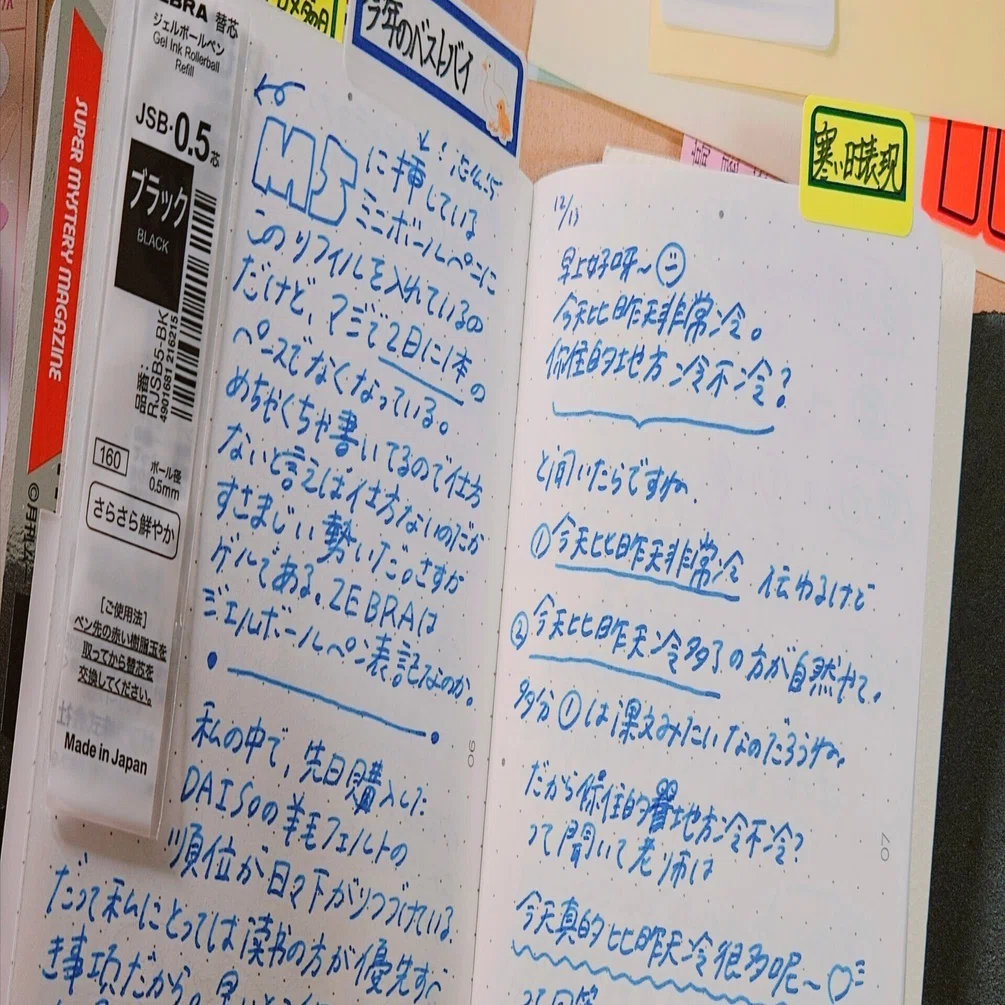 ZEBRA 替芯
ジェルボールペン
Gel Ink Rollerball
Refill
JSB・0.5芯
ブラック
BLACK
品番:
RJSB5-BK
4901681 216215
160
ボール径
0.5mm
さらさら鮮やか
[ご使用法]
ペン先の赤い樹脂玉を
取ってから替芯を
交換してください。
Made in Japan
SUPER MYSTERY MAGAZINE
©月刊
今年のベストバイ
M5に挿している
ミニボールペンに
このリフィルを入れているの
だけど、マジで2日に1本の
ペースでなくなっている。
めちゃくちゃ書いてるので仕方
ないと言えば仕方ないのだが
すさまじい勢いだ。さすが
ゲルである。ZEBRAは
ジェルボールペン表記なのか。
私の中で、先日購入した
DAISOの羊毛フェルトの
順位が日々下がりつづけている
だって私にとっては读书の方が優先すべ
き事項だから。
06
寒い日表現
12/13
早上好呀~
今天比昨天非常冷。
你住的地方冷不冷?
と聞いたらですね、
①今天比昨天非常冷 伝わるけど
②今天比昨天冷多了の方が自然やで。
多分①は漢文みたいなのだろうね。
だから你住的地方冷不冷?
って聞いて老师は
今天真的比昨天冷很多呢~
07